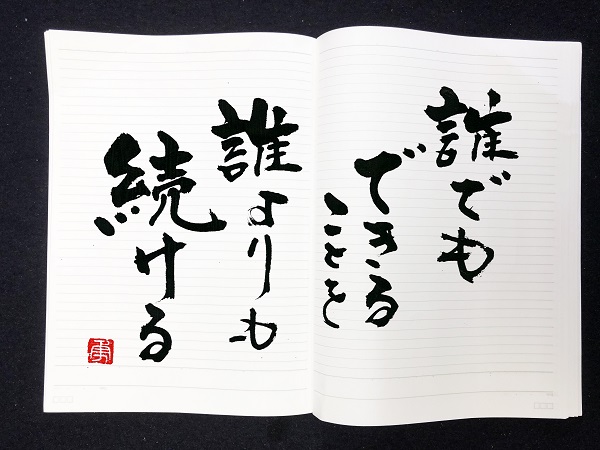 誰でも
できる
ことを
誰よりも
続ける